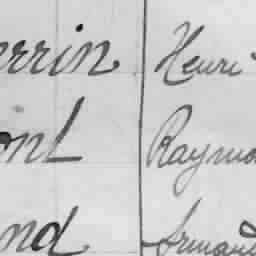 errin Henri
ont Raymo
nd Armand